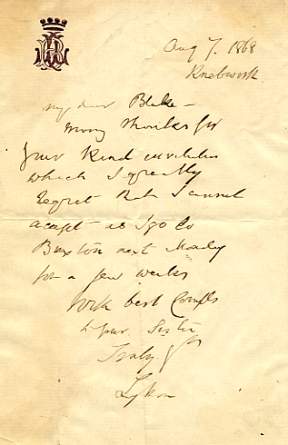 Aug 7. 1868
Knebworth
my dear Blake –
many thanks for
your kind invitation
which I greatly
regret that I cannot
accept – as I go to
Buxton next Monday
for a few weeks
with best Compts
to your Sister
Truly Yrs
Lytton